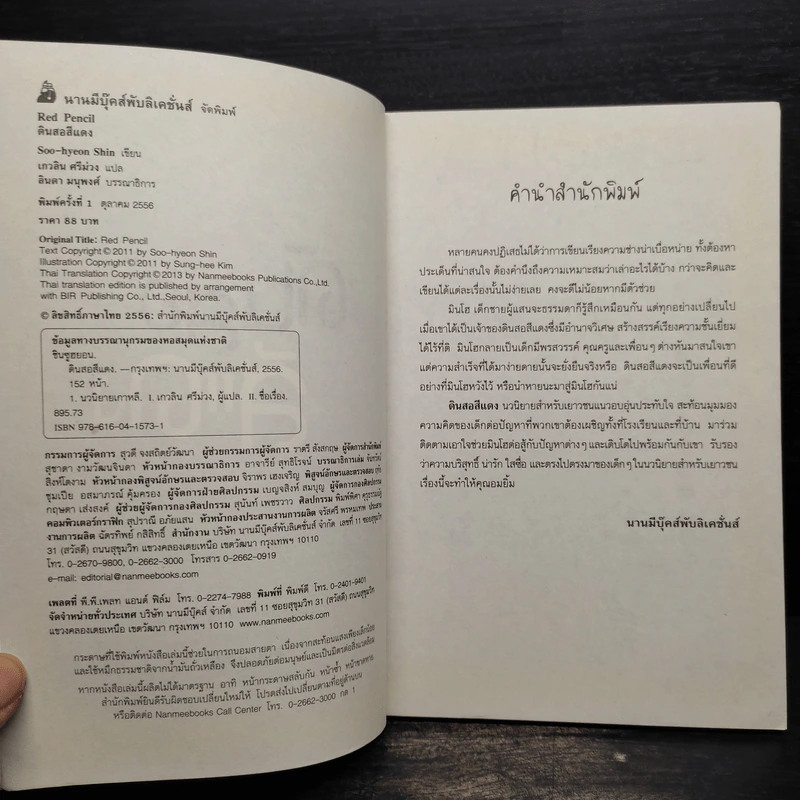 นานมีบุ๊คส์พับลิเคชั่นส์ จัดพิมพ์
Red Pencil
ดินสอสีแดง
Soo-hyeon Shin เขียน
เกวลิน ศรีม่วง แปล
ลินดา มนุพงศ์ บรรณาธิการ
พิมพ์ครั้งที่ 1 ตุลาคม 2556
ราคา 88 บาท
Original Title: Red Pencil
Text Copyright © 2011 by Soo-hyeon Shin
Illustration Copyright © 2011 by Sung-hee Kim
Thai Translation Copyright © 2013 by Nanmeebooks Publications Co.,Ltd.
Thai translation edition is published by arrangement
with BIR Publishing Co., Ltd.,Seoul, Korea.
© ลิขสิทธิ์ภาษาไทย 2556: สำนักพิมพ์นานมีบุ๊คส์พับลิเคชั่นส์
ข้อมูลทางบรรณานุกรมของหอสมุดแห่งชาติ
ชินซูฮยอน.
ดินสอสีแดง. —กรุงเทพฯ: นานมีบุ๊คส์พับลิเคชั่นส์, 2556.
152 หน้า.
1. นวนิยายเกาหลี. I. เกวลิน ศรีม่วง, ผู้แปล. II. ชื่อเรื่อง.
895.73
ISBN 978-616-04-1573-1
กรรมการผู้จัดการ สุวดี จงสถิตย์วัฒนา ผู้ช่วยกรรมการผู้จัดการ ราตรี สังสกฤษ ผู้จัดการสำนักพิมพ์
สุชาดา งามวัฒนจินดา หัวหน้ากองบรรณาธิการ อาจารีย์ สุทธิโรจน์ บรรณาธิการเล่ม จันทวัฒน์
สิงห์โตงาม หัวหน้ากองพิสูจน์อักษรและตรวจสอบ จิราพร เฮงเจริญ พิสูจน์อักษรและตรวจสอบ
ชุมเปีย อสมาภรณ์ คุ้มครอง ผู้จัดการฝ่ายศิลปกรรม เบญจสิงห์ สมบุญ ผู้จัดการกองศิลปกรรม
กฤษดา เส่งสงค์ ผู้ช่วยผู้จัดการกองศิลปกรรม สุนันท์ เพชรวาว ศิลปกรรม พิมพ์พิศา
คอมพิวเตอร์กราฟิก สุปราณี อภัยแสน หัวหน้ากองประสานงานการผลิต จรัสศรี พรหมเทพ ประสาน
งานการผลิต ฉัตรทิพย์ กสิสิทธิ์ สำนักงาน บริษัท นานมีบุ๊คส์พับลิเคชั่นส์ จำกัด เลขที่ 11 ซอยสุขุมวิท
31 (สวัสดี) ถนนสุขุมวิท แขวงคลองเตยเหนือ เขตวัฒนา กรุงเทพฯ 10110
โทร. 0-2670-9800, 0-2662-3000 โทรสาร 0-2662-0919
e-mail: editorial@nanmeebooks.com
เพลตที่ พี.พี.เพลท แอนด์ ฟิล์ม โทร. 0-2274-7988 พิมพ์ที่ พิมพ์ดี โทร. 0-2401-9401
จัดจำหน่ายทั่วประเทศ บริษัท นานมีบุ๊คส์ จำกัด เลขที่ 11 ซอยสุขุมวิท 31 (สวัสดี) ถนนสุขุมวิท
แขวงคลองเตยเหนือ เขตวัฒนา กรุงเทพฯ 10110 www.nanmeebooks.com
กระดาษที่ใช้พิมพ์หนังสือเล่มนี้ช่วยในการถนอมสายตา เนื่องจากสะท้อนแสงเพียงเล็กน้อย
และใช้หมึกธรรมชาติจากน้ำมันถั่วเหลือง จึงปลอดภัยต่อมนุษย์และเป็นมิตรต่อสิ่งแวดล้อม
หากหนังสือเล่มนี้ผลิตไม่ได้มาตรฐาน อาทิ หน้ากระดาษสลับกัน หน้าซ้ำ หน้าขาดหาย
สำนักพิมพ์ยินดีรับผิดชอบเปลี่ยนใหม่ให้ โปรดส่งไปเปลี่ยนตามที่อยู่ด้านบน
หรือติดต่อ Nanmeebooks Call Center โทร. 0-2662-3000 กด 1
คำนำสำนักพิมพ์
หลายคนคงปฏิเสธไม่ได้ว่าการเขียนเรียงความช่างน่าเบื่อหน่าย ทั้งต้องหา
ประเด็นที่น่าสนใจ ต้องคำนึงถึงความเหมาะสมว่าเล่าอะไรได้บ้าง กว่าจะคิดและ
เขียนได้แต่ละเรื่องนั้นไม่ง่ายเลย คงจะดีไม่น้อยหากมีตัวช่วย
มินโฮ เด็กชายผู้แสนจะธรรมดาก็รู้สึกเหมือนกัน แต่ทุกอย่างเปลี่ยนไป
เมื่อเขาได้เป็นเจ้าของดินสอสีแดงซึ่งมีอำนาจวิเศษ สร้างสรรค์เรียงความชั้นเยี่ยม
ได้ไร้ที่ติ มินโฮกลายเป็นเด็กมีพรสวรรค์ คุณครูและเพื่อนๆ ต่างหันมาสนใจเขา
แต่ความสำเร็จที่ได้มาง่ายดายนั้นจะยั่งยืนจริงหรือ ดินสอสีแดงจะเป็นเพื่อนที่ดี
อย่างที่มินโฮหวังไว้ หรือนำหายนะมาสู่มินโฮกันแน่
ดินสอสีแดง นวนิยายสำหรับเยาวชนแนวอบอุ่นประทับใจ สะท้อนมุมมอง
ความคิดของเด็กต่อปัญหาที่พวกเขาต้องเผชิญทั้งที่โรงเรียนและที่บ้าน มาร่วม
ติดตามเอาใจช่วยมินโฮต่อสู้กับปัญหาต่างๆ และเติบโตไปพร้อมกันกับเขา รับรอง
ว่าความบริสุทธิ์ น่ารัก ใสซื่อ และตรงไปตรงมาของเด็กๆ ในนวนิยายสำหรับเยาวชน
เรื่องนี้จะทำให้คุณอมยิ้ม
นานมีบุ๊คส์พับลิเคชั่นส์